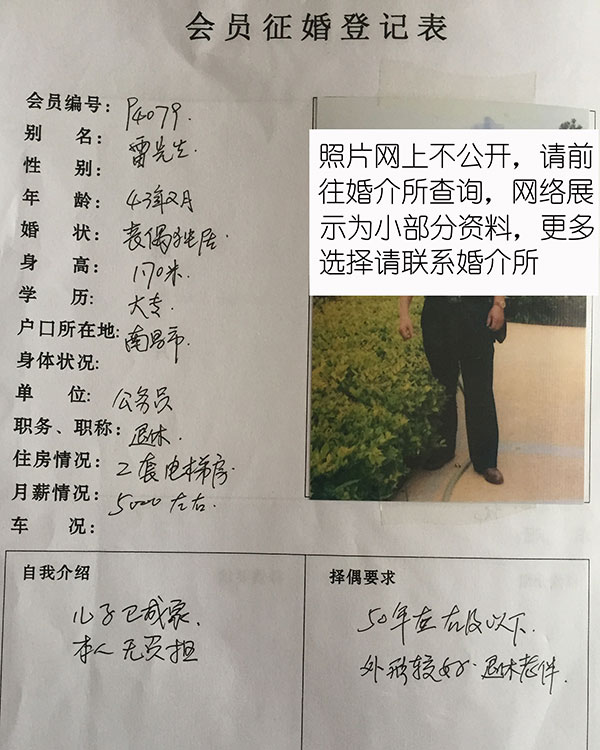 会员征婚登记表
会员编号：P4079.
别 名：雷先生
性 别：
年 龄：43年2月
婚 状：丧偶独居
身 高：1.70米.
学 历：大专
户口所在地：南昌市.
身体状况：
单 位：公务员
职务、职称：退休.
住房情况：二套电梯房.
月薪情况：5000左右.
车 况：
照片网上不公开，请前
往婚介所查询，网络展
示为小部分资料，更多
选择请联系婚介所
自我介绍
儿子已成家.
本人无负担
择偶要求
50年左右及以下.
外形较好.退休条件.